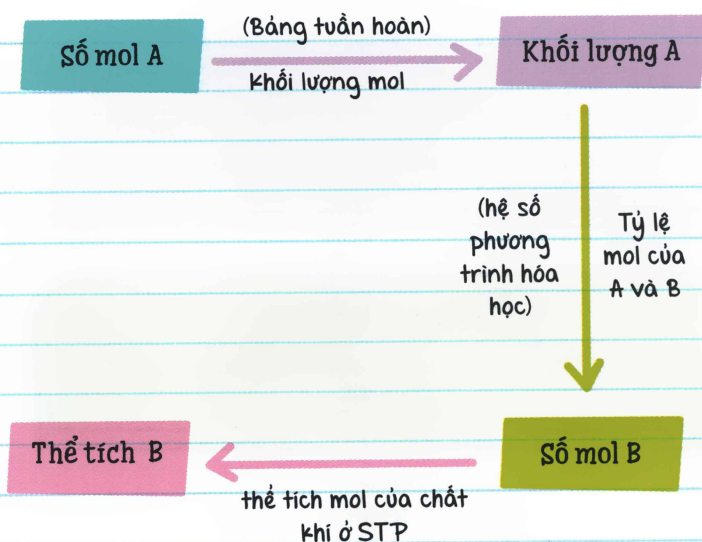 Số mol A
(Bảng tuần hoàn)
Khối lượng mol
Khối lượng A
(hệ số
phương
trình hóa
học)
Tỷ lệ
mol của
A và B
Số mol B
thể tích mol của chất
khí ở STP
Thể tích B